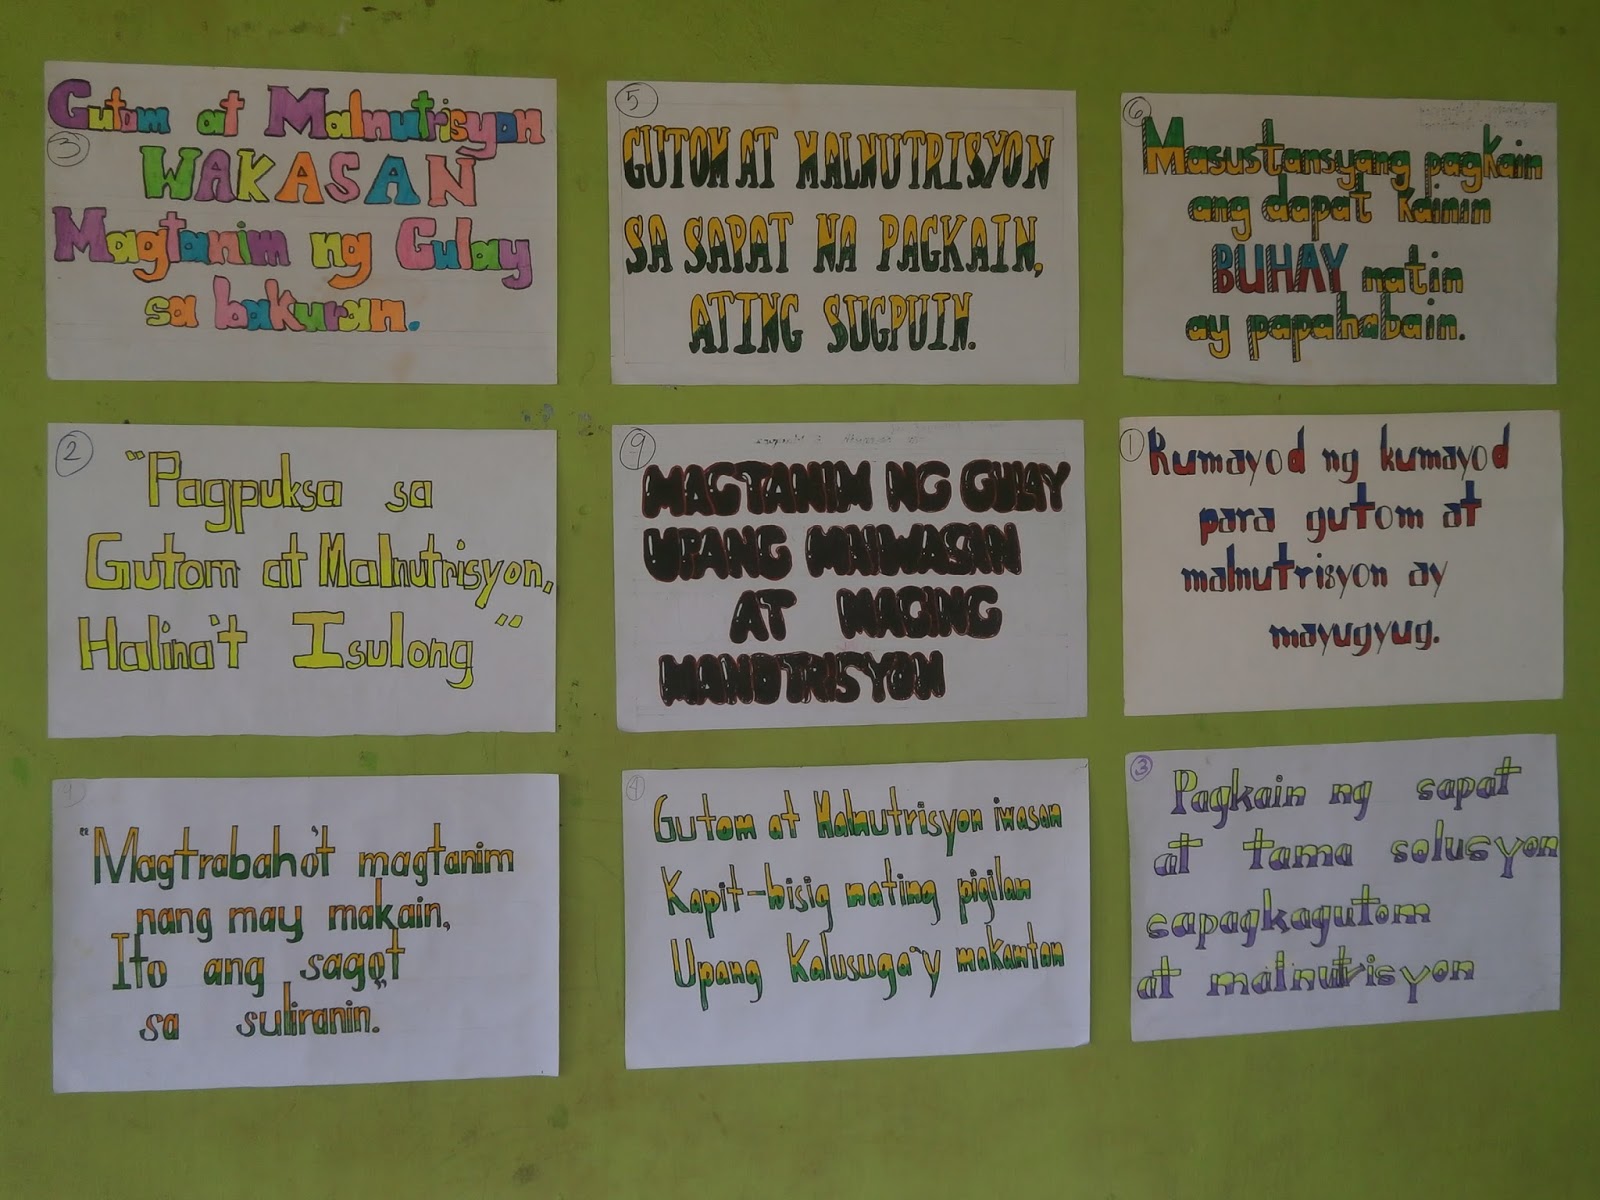 3
Gutom at Malnutrisyon
WAKASAN
Magtanim ng Gulay
sa bakuran.
5
GUTOM AT MALNUTRISYON
SA SAPAT NA PAGKAIN,
ATING SUGPUIN.
6
Masustansyang pagkain
ang dapat kainin
BUHAY natin
ay papahabain.
2
"Pagpuksa sa
Gutom at Malnutrisyon,
Halina't Isulong"
9
MAGTANIM NG GULAY
UPANG MAIWASAN
AT MAGING
MANUTRISYON
1
Kumayod ng kumayod
para gutom at
malnutrisyon ay
mayugyug.
"Magtrabaho't magtanim
nang may makain,
Ito ang sagot
sa suliranin."
4
Gutom at Malnutrisyon iwasan
Kapit-bisig nating pigilan
Upang Kalusuga'y makamtan
3
Pagkain ng sapat
at tama solusyon
sapagkagutom
at malnutrisyon